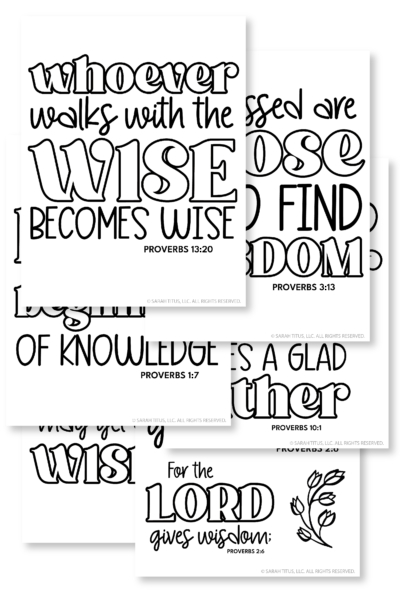 whoever
walks with the
WISE
BECOMES WISE
PROVERBS 13:20
© SARAH TITUS, LLC. ALL RIGHTS RESERVED.
ssed are
ose
O FIND
DOM
PROVERBS 3:13
© SARAH TITUS, LLC. ALL RIGHTS RESERVED.
OF KNOWLEDGE
PROVERBS 1:7
© SARAH TITUS, LLC. ALL RIGHTS RESERVED.
ES A GLAD
ther
PROVERBS 10:1
© SARAH TITUS, LLC. ALL RIGHTS RESERVED.
WIS
For the
LORD
gives wisdom;
PROVERBS 2:6
© SARAH TITUS, LLC. ALL RIGHTS RESERVED.